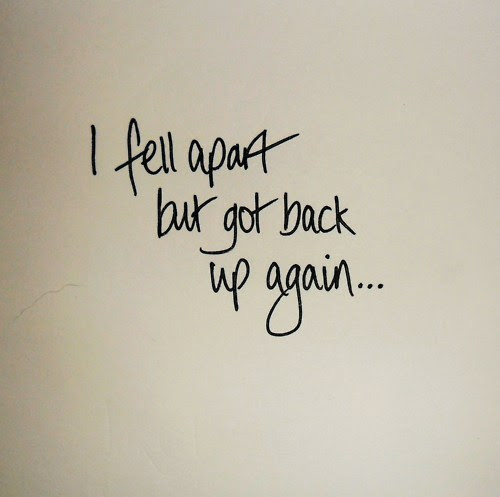 I fell apart
but got back
up again...